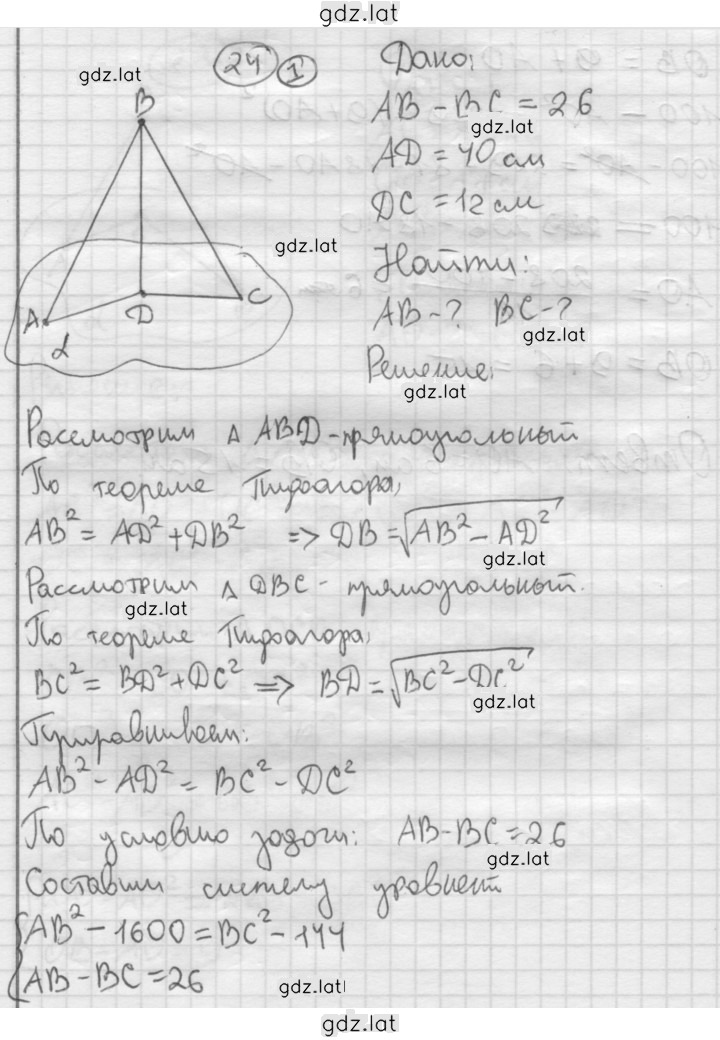 gdz.lat
24 I
Дано:
gdz.lat
B
AB - BC = 26
gdz.lat
AD = 40 см
DC = 12 см
gdz.lat
Найти:
A D C
AB - ? BC - ?
gdz.lat
Решение:
gdz.lat
Рассмотрим Δ ABD - прямоугольный
По теореме Пифагора,
AB² = AD² + DB² => DB = √AB² - AD²
gdz.lat
Рассмотрим Δ DBC - прямоугольный.
gdz.lat
По теореме Пифагора,
BC² = BD² + DC² => BD = √BC² - DC²
gdz.lat
Приравниваем:
AB² - AD² = BC² - DC²
По условию задачи: AB - BC = 26
gdz.lat
Составим систему уравнений
AB² - 1600 = BC² - 144
AB - BC = 26
gdz.lat
gdz.lat